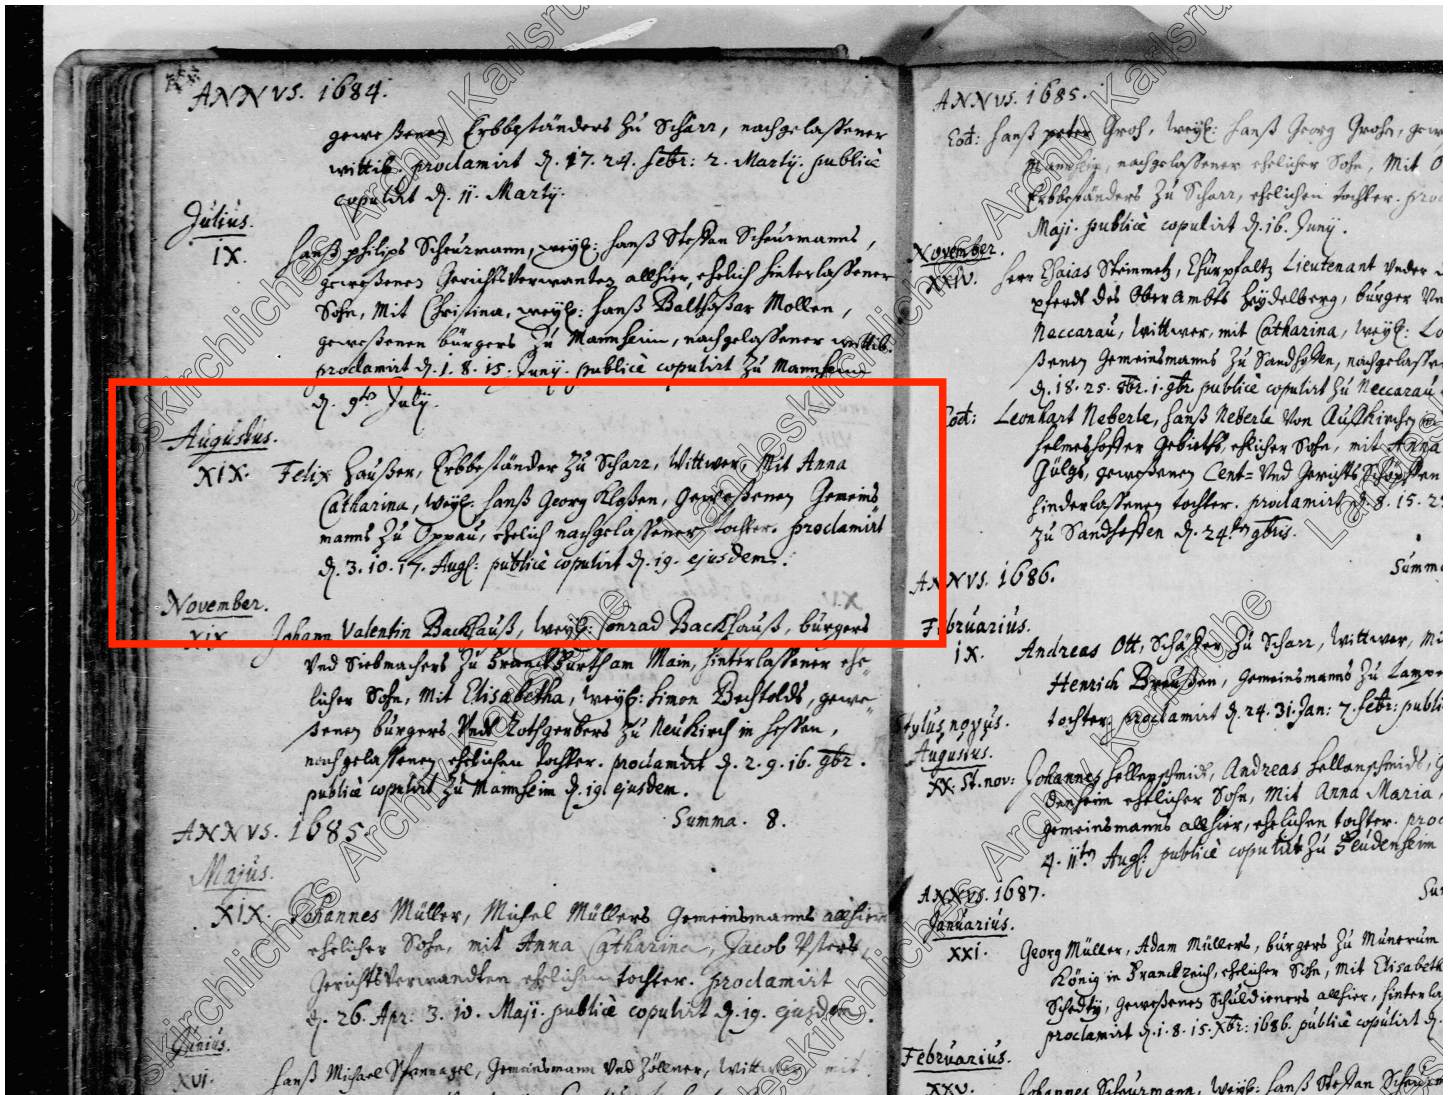 ANNVS. 1684.
geweßenen Erbbeständers zu Scharr, nachgelaßener
wittib. proclamirt d. 17. 24. febr: 2. Martÿ. publicè
copulirt d. 11. Martÿ.
Julius.
IX. Hanß philips Scheurmann, weyl: Hanß Steffan Scheurmanns,
geweßenen Gerichts Verwanten allhier, ehelich hinterlaßener
Sohn, Mit Christina, weyl: Hanß Balthaßar Mollen,
geweßenen bürgers zu Mannheim, nachgelaßener wittib.
proclamirt d. 1. 8. 15. Junÿ. publicè copulirt zu Mannheim
d. 9ten Julÿ.
Augustus.
XIX. Felix Haußer, Erbbeständer zu Scharr, Wittwer, Mit Anna
Catharina, weyl: Hanß Georg geweßenen Gemeins
manns zu Oppau, ehelich nachgelaßener tochter. proclamirt
d. 3. 10. 17. Aug: publicè copulirt d. 19. ejusdem.
November.
XIX. Johann Valentin Backhauß, weyl: Conrad Backhauß, bürgers
Vnd Siebmachers zu Franckfurth am Main, hinterlaßener ehe-
licher Sohn, Mit Elisabetha, weyl: Simon Bechtolds, gewe-
ßenen bürgers Vnd Rothgerbers zu Neukirch in Heßen,
nachgelaßenen ehelichen tochter. proclamirt d. 2. 9. 16. 9br.
publicè copulirt zu Mannheim d. 19 ejusdem.
Summa. 8.
ANNVS. 1685.
Majus.
XIX. Johannes Müller, Michel Müllers Gemeinsmanns allhier
ehelicher Sohn, mit Anna Catharina, Jacob
Gerichts Verwandten ehelichen tochter. proclamirt
d. 26. Apr: 3. 10. Maji. publicè copulirt d. 19. ejusdem.
Junius.
XVI. Hanß Michael Gemeinsmann Vnd Zöllner, Wittwer mit
ANNVS. 1685.
Eod: Hanß peter Groh, weyl: Hanß Georg Grohn, gew
nachgelaßener ehelicher Sohn, Mit
Erbbeständers zu Scharr, ehelichen tochter. proc
Maji. publicè copulirt d. 16. Junÿ.
November.
XXIV. Herr Esaias Steinmetz, Churpfaltz Lieutenant Vnder
pferdt des Ober Ambts Heydelberg, bürger Vn
Neccarau, Wittwer, mit Catharina, weyl: Lo
ßenen Gemeinsmanns zu Sandhoffen, nachgelaße
d. 18. 25. 8br. 1. 9br. publicè copulirt zu Neccarau
Eod: Leonhart Neberle, Hanß Neberle Von Auffkirchen
Gebieths, ehelicher Sohn, mit Anna
geweßenen Cent= Vnd Gerichts Schöpffen
hinderlaßenen tochter. proclamirt d. 8. 15. 2
zu Sandhoffen d. 24ten 9bris.
Summa
ANNVS. 1686.
Februarius.
IX. Andreas Ott, Schäffer zu Scharr, Wittwer, Mi
Henrich Gemeinsmanns zu Lampe
tochter. proclamirt d. 24. 31. Jan: 7. febr: publi
Stylus novus.
Augustus.
XX. St. nov: Johannes Andreas
denheim ehelicher Sohn, Mit Anna Maria,
gemeinsmanns allhier, ehelichen tochter. proc
4. 11ten Aug: publicè copulirt zu Feudenheim
ANNVS. 1687.
Januarius.
XXI. Georg Müller, Adam Müllers, bürgers zu
König in Franckreich, ehelicher Sohn, Mit Elisabeth
geweßenen Schuldieners allhier, hinterla
proclamirt d. 1. 8. 15. Xbr: 1686. publicè copulirt d.
Februarius.
XXV. Johannes Scheurmann, weyl: Hanß Steffan Scheurm
Landeskirchliches Archiv Karlsruhe